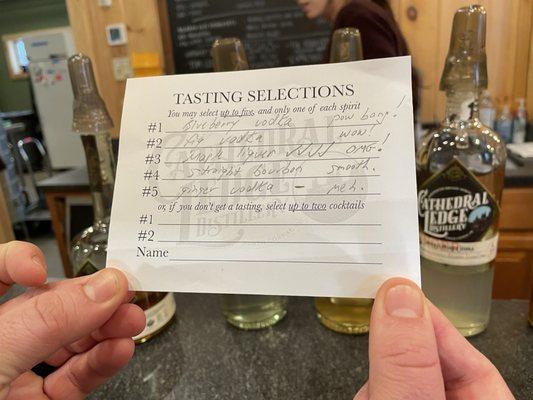 TASTING SELECTIONS
You may select up to five, and only one of each spirit
#1 Blueberry vodka pow bang!
#2 Fig vodka WOW!
#3 liquer OMG!
#4 straight bourbon smooth.
#5 ginger vodka - meh.
or, if you don't get a tasting, select up to two cocktails
#1
#2
Name
CATHEDRAL
LEDGE
DISTILLERY